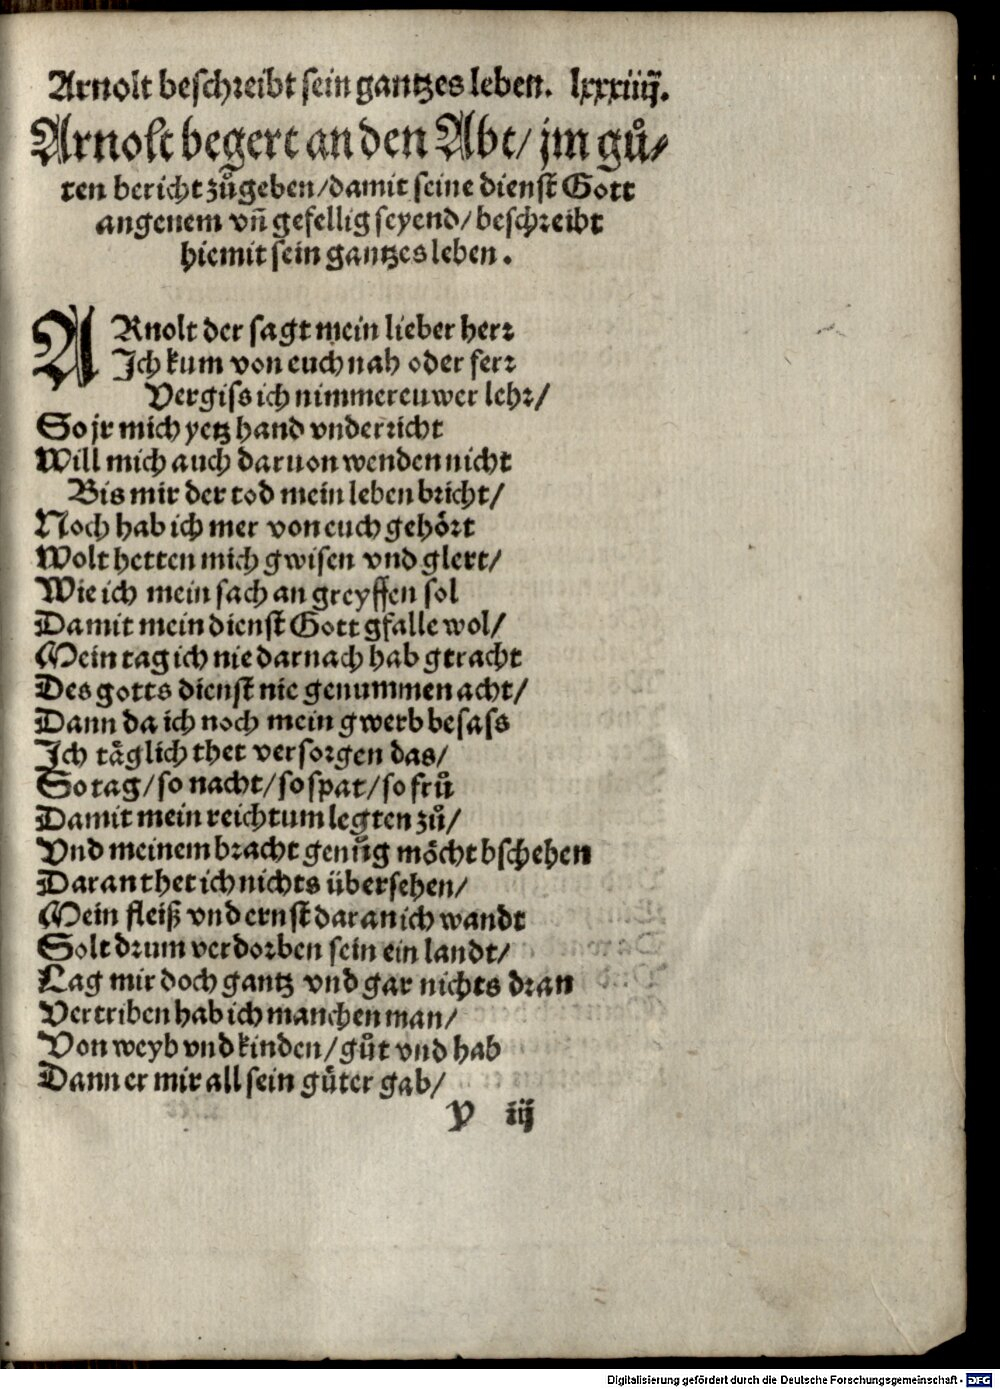 Arnolt beschreibt sein gantzes leben. lxxxiiij.
Arnolt begert an den Abt/ jm gů-
ten bericht zůgeben/ damit seine dienst Gott
angenem vñ gefellig seyend/ beschreibt
hiemit sein gantzes leben.
ARnolt der sagt mein lieber herr
Ich kum von euch nah oder ferr
Vergiss ich nimmer euwer lehr/
So jr mich yetz hand vnderricht
Will mich auch daruon wenden nicht
Bis mir der tod mein leben bricht/
Noch hab ich mer von euch gehört
Wolt hetten mich gwisen vnd glert/
Wie ich mein sach an greyffen sol
Damit mein dienst Gott gfalle wol/
Mein tag ich nie darnach hab gtracht
Des gotts dienst nie genummen acht/
Dann da ich noch mein gwerb besass
Ich täglich thet versorgen das/
So tag/ so nacht/ so spat/ so frů
Damit mein reichtum legten zů/
Vnd meinem bracht genůg möcht bschehen
Daran thet ich nichts übersehen/
Mein fleiß vnd ernst daran ich wandt
Solt drum verdorben sein ein landt/
Lag mir doch gantz vnd gar nichts dran
Vertriben hab ich manchen man/
Von weyb vnd kinden/ gůt vnd hab
Dann er mir all sein güter gab/
Y iij
Digitalisierung gefördert durch die Deutsche Forschungsgemeinschaft - DFG